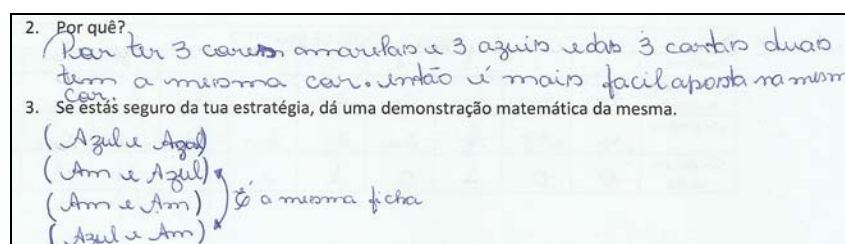 2. Por quê?
Por ter 3 cores amarelas e 3 azuis e das 3 cartas duas
tem a mesma cor. então é mais facil aposta na mesm
cor.
3. Se estás seguro da tua estratégia, dá uma demonstração matemática da mesma.
(Azul e Azul)
(Am e Azul)
(Am e Am) é a mesma ficha
(Azul e Am)